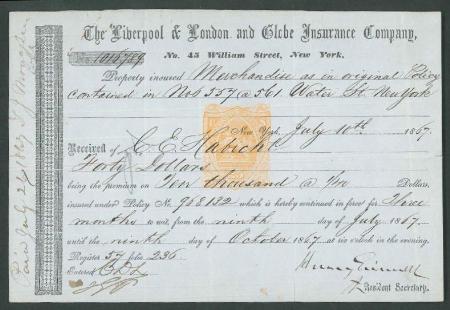 The Liverpool & London and Globe Insurance Company,
No. 45 William Street, New York,
Property insured Merchandise as in original Policy
contained in Nos 557 @ 561 Water St. New York
New York, July 10th 1867
Received of C. E. Habicht
Forty Dollars
being the premium on Ten thousand @ Dollars,
insured under Policy No. 768132 which is hereby continued in force for Three
months to wit, from the ninth day of July 1867
until the ninth day of October 1867 at six o'clock in the evening.
Register 57 folio 236
Entered
Resident Secretary.
Paid July 24 1867